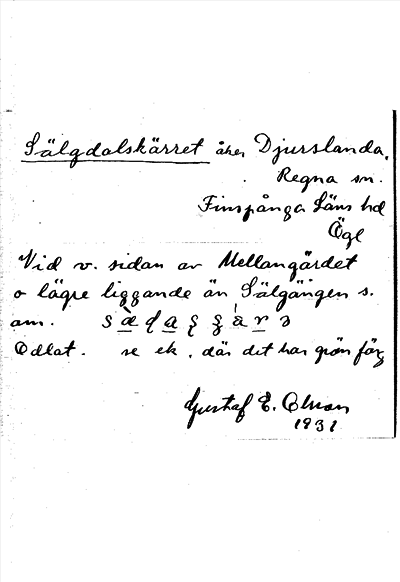 Sälgdalskärret åker Djurslanda,
Regna sn.
Finspånga Läns hd
Ögl
Vid v. sidan av Mellangärdet
o lägre liggande än Sälgängen s.
am.
Odlat. se ek, där det har grön färg
Gustaf E. Olson
1931